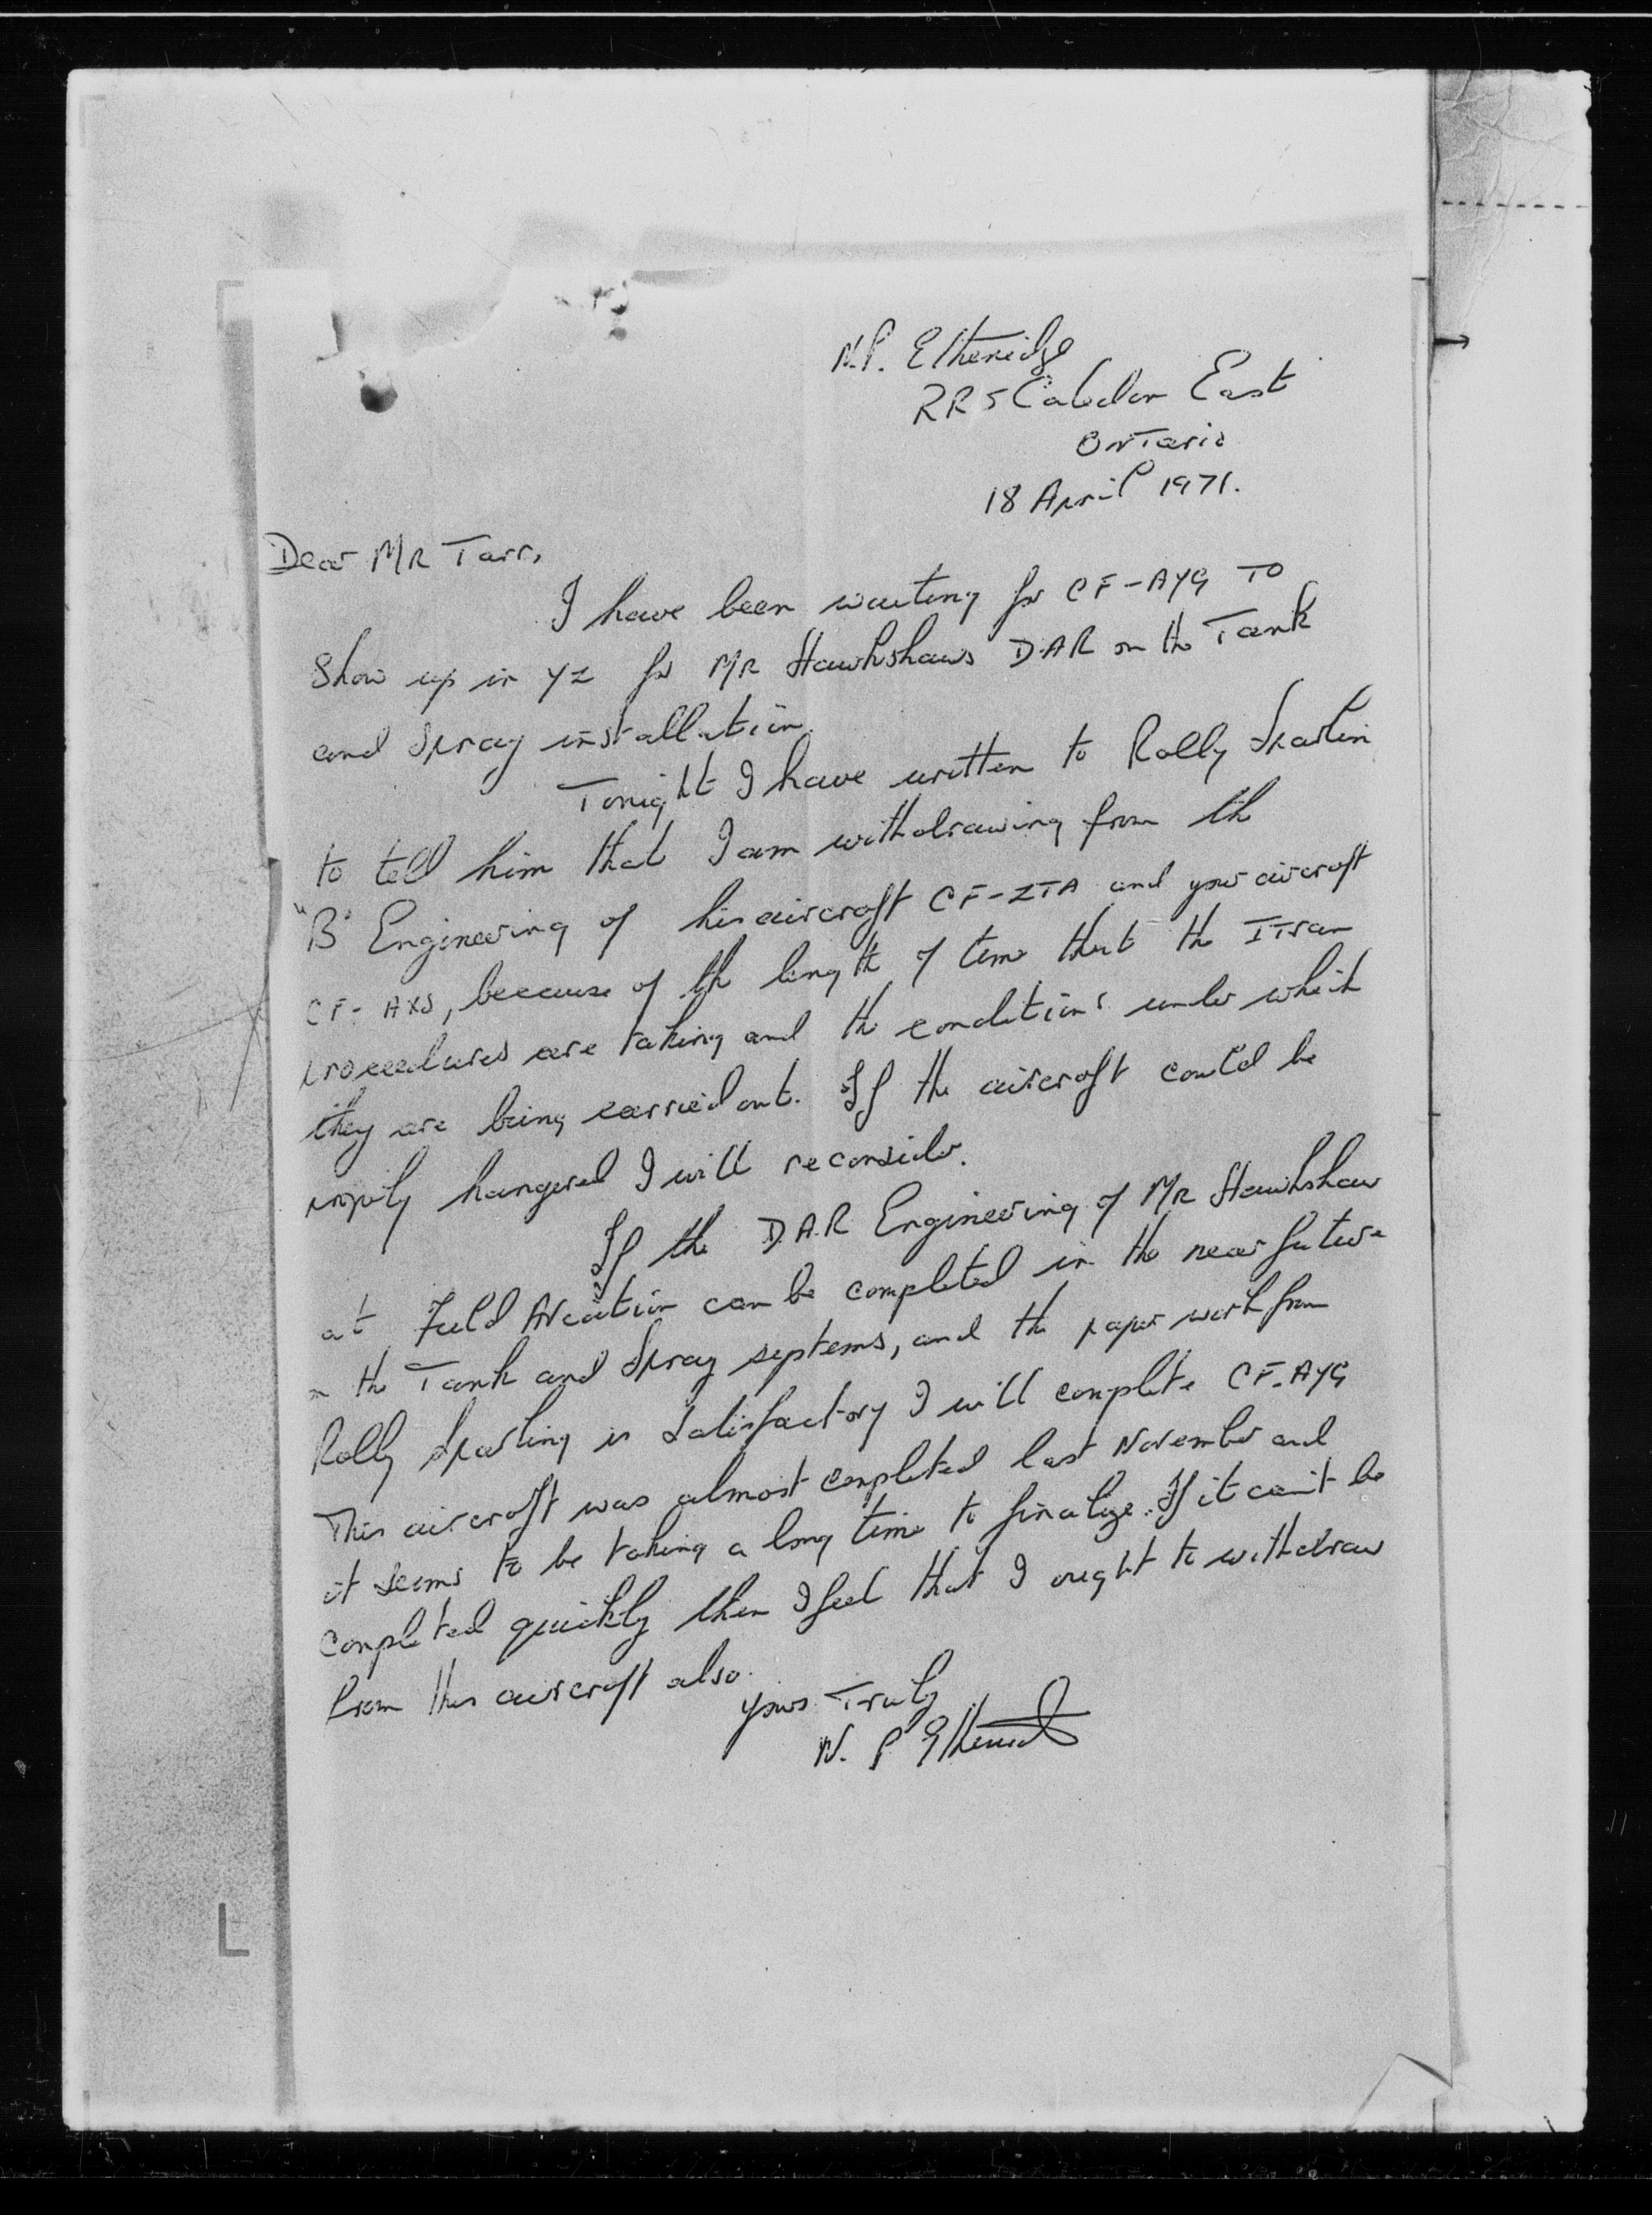 N.P. Etheridge
RR 5 Caledon East
Ontario
18 April 1971.
Dear MR Tarr,
I have been waiting for CF-AYG TO
Show up in YZ for MR Hawkshaws D.A.R on the Tank
and Spray installation.
Tonight I have written to Rolly Sparlin
to tell him that I am withdrawing from the
"B" Engineering of his aircraft CF-ZTA and your aircraft
CF-AXS, because of the length of time that the ITran
procedures are taking and the conditions under which
they are being carried out. If the aircraft could be
properly hangered I will reconsider.
If the D.A.R Engineering of MR Hawkshaw
at Field Aviation can be completed in the near future
on the Tank and Spray systems, and the paper work from
Rolly Sparling is satisfactory I will complete CF-AYG
This aircraft was almost completed last November and
it seems to be taking a long time to finalize. If it can't be
completed quickly then I feel that I ought to withdraw
from this aircraft also.
Yours Truly
N. P Etheridge
L